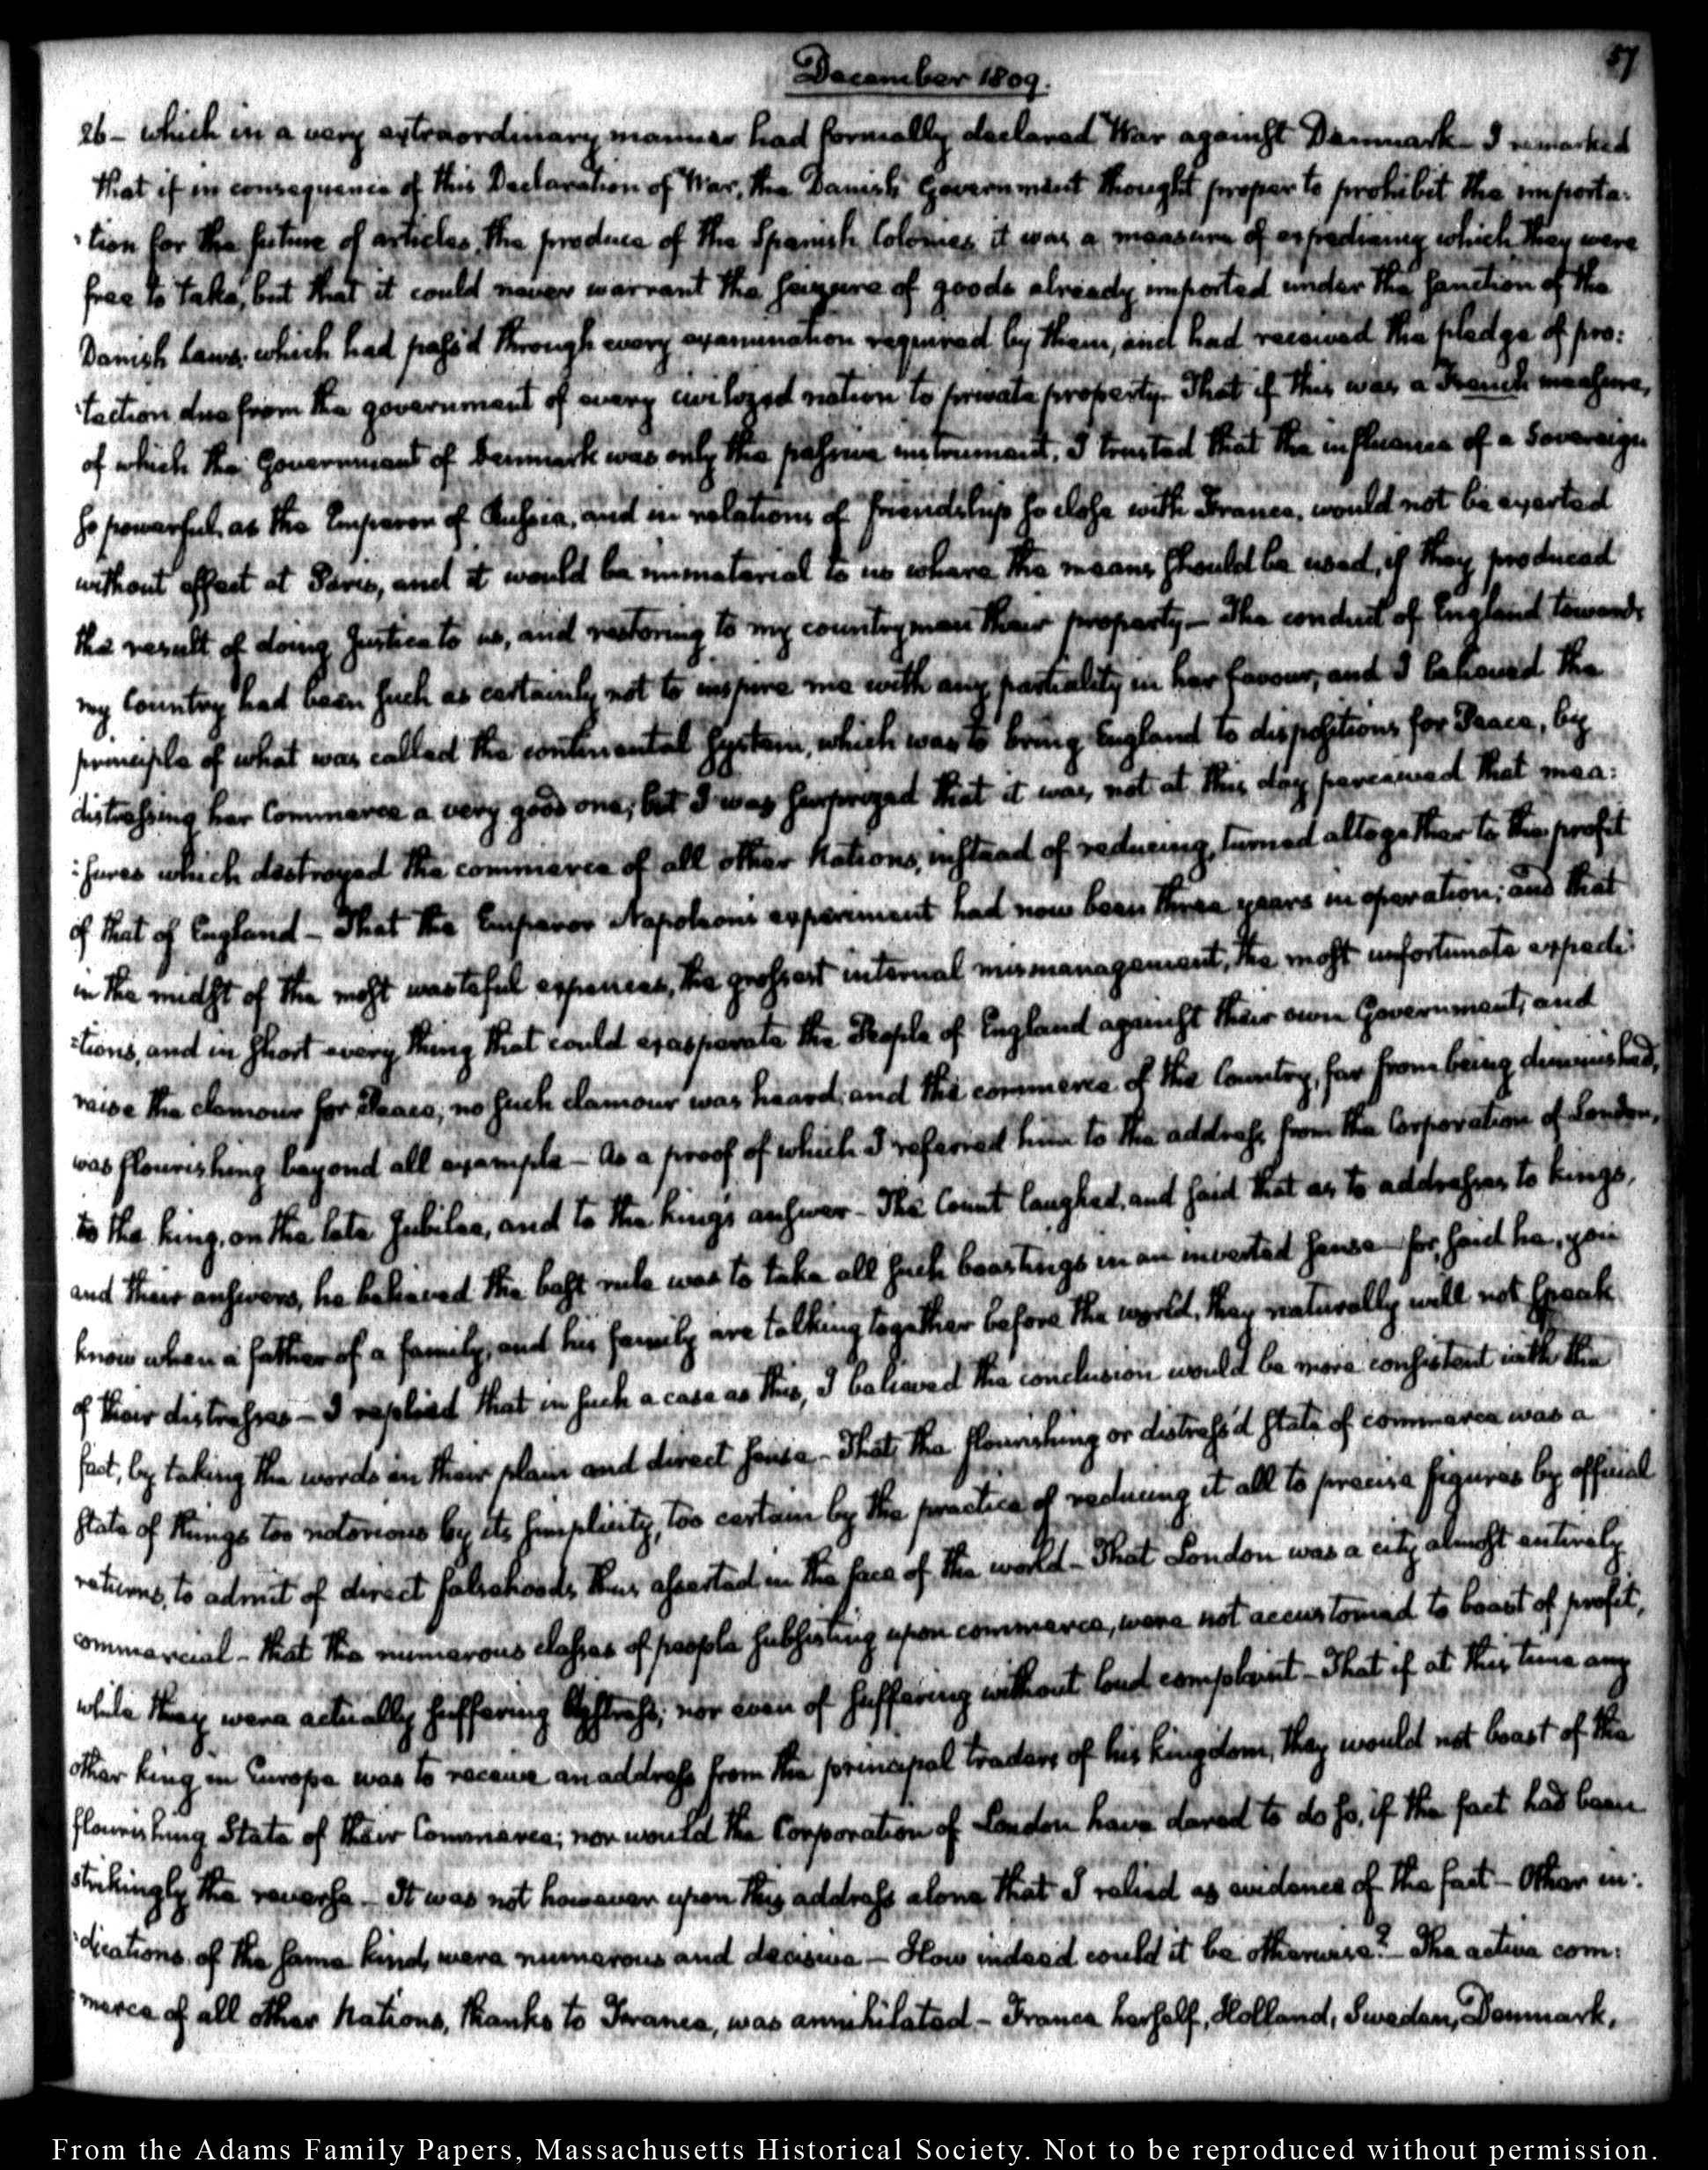 December 1809.
57
26 – which in a very extraordinary manner had formally declared War against Denmark – I remarked
that if in consequence of this Declaration of War, the Danish Government thought proper to prohibit the importa:
:tion for the future of articles, the produce of the Spanish Colonies it was a measure of expediency which they were
free to take, but that it could never warrant the seizure of goods already imported under the sanction of the
Danish Laws, which had pass'd through every examination required by them, and had received the pledge of pro:
:tection due from the government of every civilized nation to private property – That if this was a French measure,
of which the Government of Denmark was only the passive instrument, I trusted that the influence of a Sovereign
so powerful, as the Emperor of Russia, and in relations of friendship so close with France, would not be exerted
without effect at Paris, and it would be immaterial to us where the means should be used, if they produced
the result of doing Justice to us, and restoring to my countrymen their property – The conduct of England towards
my Country had been such as certainly not to inspire me with any partiality in her favour, and I believed the
principle of what was called the continental system, which was to bring England to dispositions for Peace, by
distressing her Commerce a very good one; but I was surprized that it was not at this day perceived that mea:
:sures which destroyed the commerce of all other Nations, instead of reducing, turned altogether to the profit
of that of England – That the Emperor Napoleon's experiment had now been three years in operation; and that
in the midst of the most wasteful expences, the grossest internal mismanagement, the most unfortunate expedi:
:tions, and in short every thing that could exasperate the People of England against their own Government, and
raise the clamour for Peace, no such clamour was heard, and the commerce of the Country, far from being diminished,
was flourishing beyond all example – As a proof of which I referred him to the address from the Corporation of London,
to the king, on the late Jubilee, and to the king's answer – The Count laughed, and said that as to addresses to kings,
and their answers, he believed the best rule was to take all such boastings in an inverted sense – for, said he, you
know when a father of a family, and his family are talking together before the world, they naturally will not speak
of their distresses – I replied that in such a case as this, I believed the conclusion would be more consistent with the
fact, by taking the words in their plain and direct sense – That the flourishing or distress'd state of commerce was a
state of things too notorious by its simplicity, too certain by the practice of reducing it all to precise figures by official
returns, to admit of direct falsehoods thus asserted in the face of the world – That London was a city almost entirely
commercial – that the numerous classes of people subsisting upon commerce, were not accustomed to boast of profit,
while they were actually suffering distress; nor even of suffering without loud complaint – That if at this time any
other king in Europe was to receive an address from the principal traders of his kingdom, they would not boast of the
flourishing State of their Commerce; nor would the Corporation of London have dared to do so, if the fact had been
strikingly the reverse – It was not however upon this address alone that I relied as evidence of the fact – Other in:
:dications of the same kind, were numerous and decisive – How indeed could it be otherwise? – The active com:
:merce of all other Nations, thanks to France, was annihilated – France herself, Holland, Sweden, Denmark,
From the Adams Family Papers, Massachusetts Historical Society. Not to be reproduced without permission.